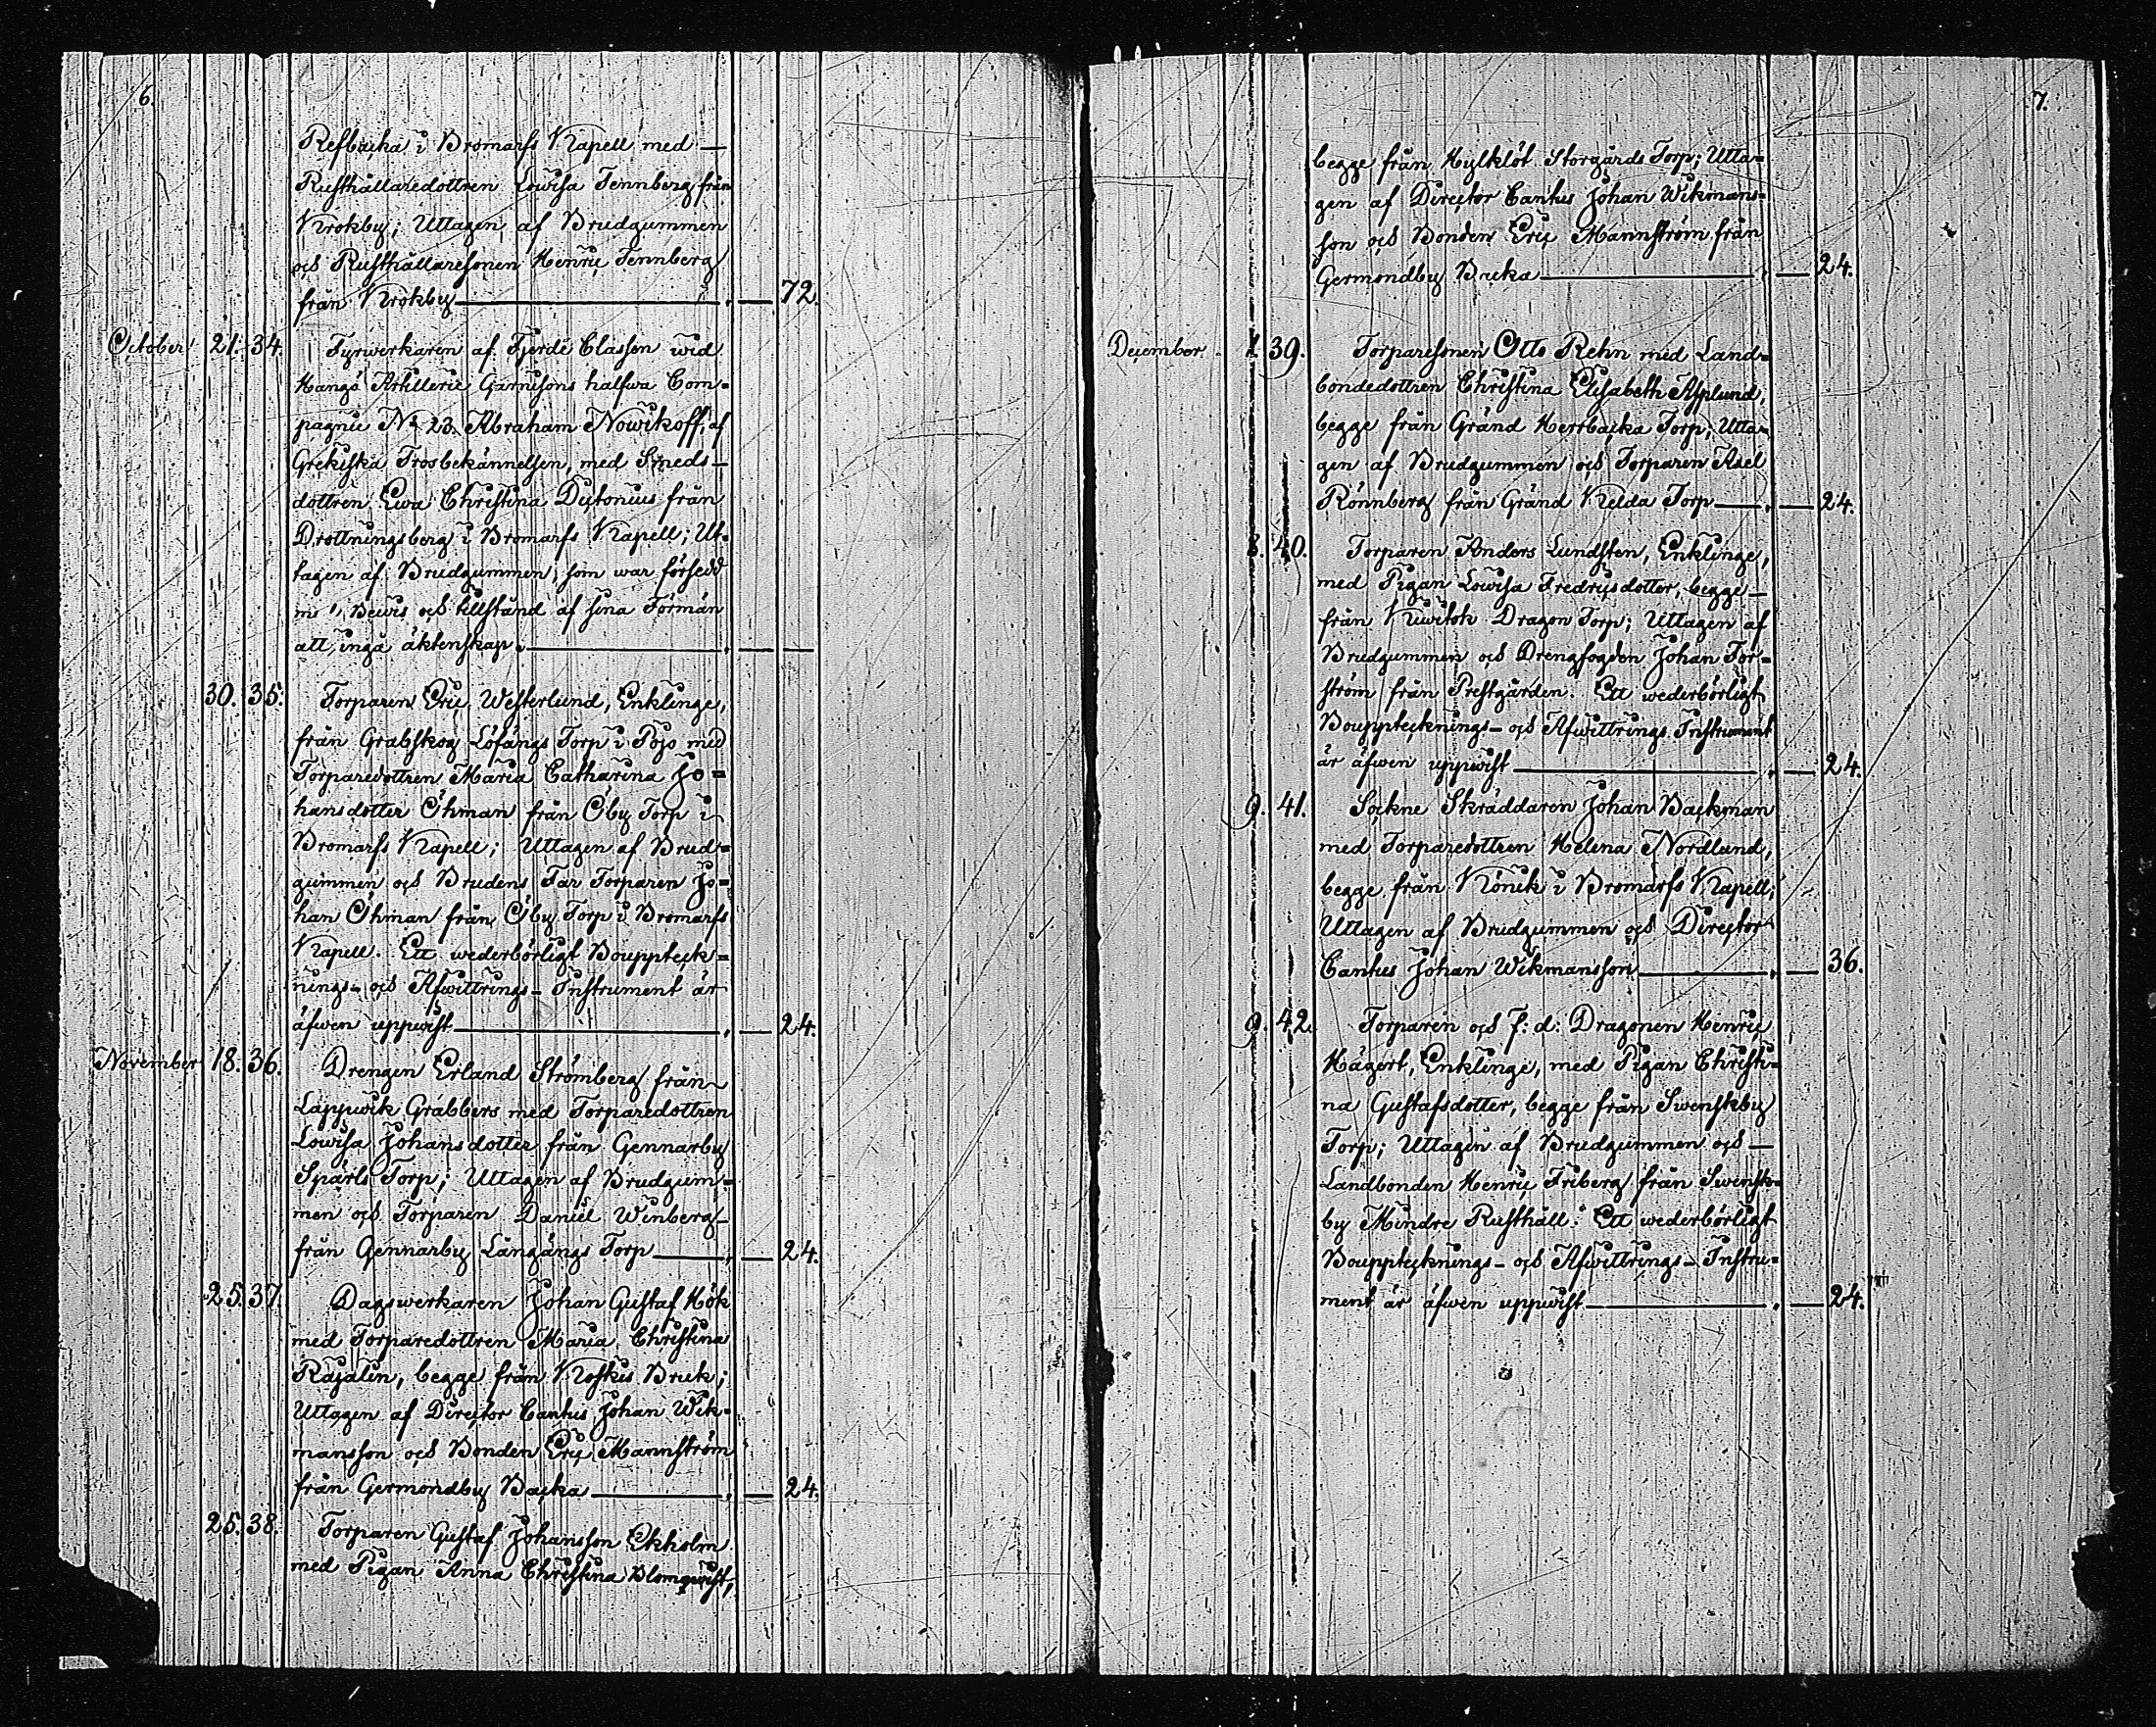 6.
Refbacka i Bromarfs Kapell med —
Rusthållaredottren Lowisa Tennberg från
Krokby; Uttagen af Brudgummen
och Rusthållaresonen Henric Tennberg
från Krokby — 72.
October 21. 34. Fyrwerkaren af Fjerde Classen wid
Hangö Artillerie Garnisons halfwa Com=
pagnie No 23. Abraham Nowikoff, af
Grekiska Trosbekännelsen, med Smeds-
dottren Ewa Christina Dytonius från
Drottningsberg i Bromarfs Kapell; Ut-
tagen af Brudgummen, som war försedd
m " Bewis och tillstånd af sina Förmän
att ingå äktenskap. —
30. 35. Torparen Eric Westerlund, Enklinge,
från Grabskog Löfängs Torp i Pojo med
Torparedottren Maria Catharina Jo=
hansdotter Öhman från Öby Torp i
Bromarfs Kapell; Uttagen af Brud=
gummen och Brudens Far Torparen Jo=
han Öhman från Öby Torp i Bromarfs
Kapell. Ett wederbörligt Bouppteck=
nings- och Afwittrings-Instrument är
äfwen uppwist — 24.
November 18. 36. Drengen Erland Strömberg från
Lappwik Grabbers med Torparedottren
Lowisa Johansdotter från Gennarby
Spärls Torp; Uttagen af Brudgum=
men och Torparen Daniel Winberg
från Gennarby Långängs Torp — 24.
25. 37. Dagswerkaren Johan Gustaf Hök
med Torparedottren Maria Christina
Rajalin, begge från Koskis Bruk;
Uttagen af Director Cantus Johan Wik=
mansson och Bonden Eric Mannström
från Germondby Backa — 24.
25. 38. Torparen Gustaf Johansson Ekholm
med Pigan Anna Christina Blomqwist,
7.
begge från Hylklöt Storgårds Torp; Utta=
gen af Director Cantus Johan Wikmans=
son och Bonden Eric Mannström från
Germondby Backa — 24.
December 39. Torparesonen Otto Rehn med Land=
bondedottren Christina Elisabeth Asplund,
begge från Gränd Herrbacka Torp; Utta=
gen af Brudgummen och Torparen Axel
Rönnberg från Gränd Kelda Torp — 24.
40. Torparen Anders Lundsten, Enklinge,
med Pigan Lowisa Fredricsdotter, begge —
från Kuwitok Dragon Torp; Uttagen af
Brudgummen och Drengfogden Johan For=
ström från Prestgården. Ett wederbörligt
Boupptecknings- och Afwittrings Instrument
är äfwen uppwist — 24.
9. 41. Sockne Skräddaren Johan Backman
med Torparedottren Helena Nordlund,
begge från Könik i Bromarfs Kapell;
Uttagen af Brudgummen och Director
Cantus Johan Wikmansson — 36.
9. 42. Torparen och f: d: Dragonen Henric
Hägert, Enklinge, med Pigan Christi=
na Gustafsdotter, begge från Swenskby
Torp; Uttagen af Brudgummen och —
Landbonden Henric Friberg från Swensk=
by Mindre Rusthåll. Ett wederbörligt
Boupptecknings- och Afwittrings-Instru=
ment är äfwen uppwist — 24.